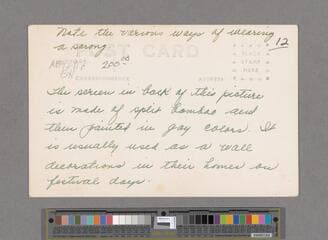 Note the various ways of wearing
a sarong.
12
POST CARD
200.00
CORRESPONDENCE
ADDRESS
The screen in back of this picture
is made of split bamboo and
then painted in gay colors. It
is usually used as a wall
decorations in their homes on
festival days.